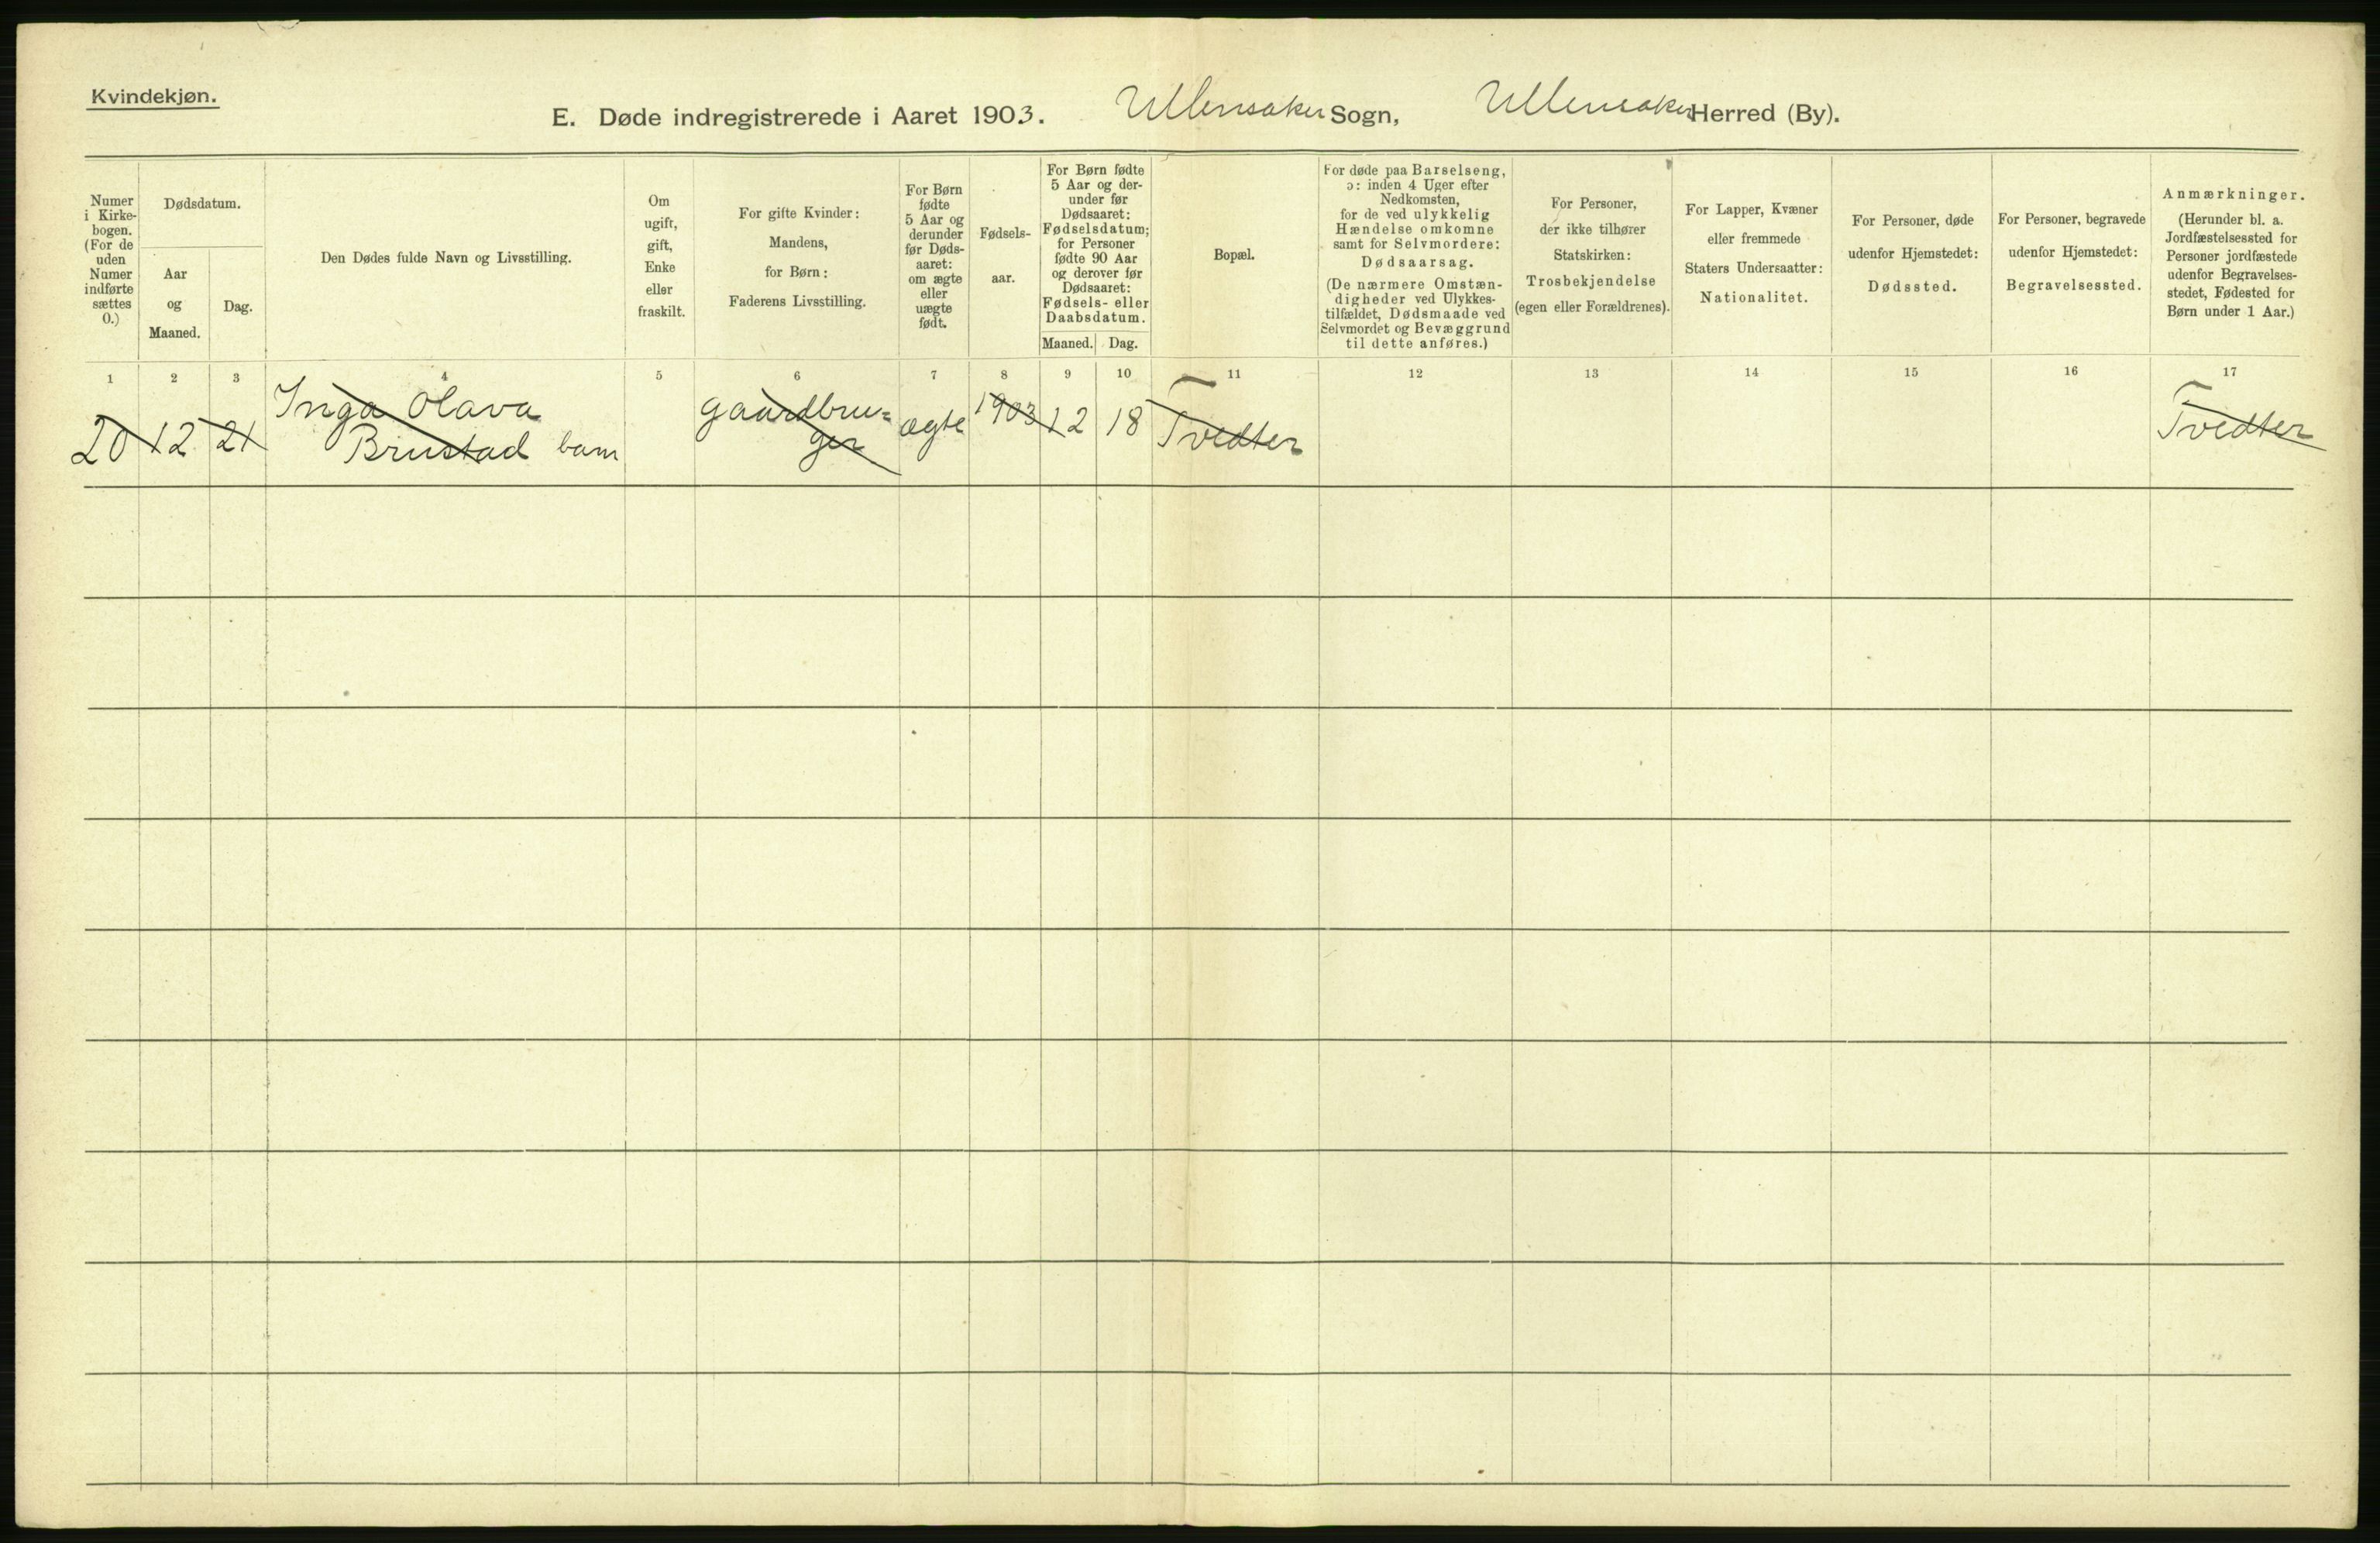 Kvindekjøn.
E. Døde indregistrerede i Aaret 1903. Ullensaker Sogn, Ullensaker Herred (By).
Numer
i Kirke-
bogen.
(For de
uden
Numer
indførte
sættes
0.)
Dødsdatum.
Aar
og
Maaned.
Dag.
Den Dødes fulde Navn og Livsstilling.
Om
ugift,
gift,
Enke
eller
fraskilt.
For gifte Kvinder:
Mandens,
for Børn:
Faderens Livsstilling.
For Børn
fødte
5 Aar og
derunder
før Døds-
aaret:
om ægte
eller
uægte
født.
Fødsels-
aar.
For Børn fødte
5 Aar og der-
under før
Dødsaaret:
Fødselsdatum;
for Personer
fødte 90 Aar
og derover før
Dødsaaret:
Fødsels- eller
Daabsdatum.
Maaned. Dag.
Bopæl.
For døde paa Barselseng,
ɔ: inden 4 Uger efter
Nedkomsten,
for de ved ulykkelig
Hændelse omkomne
samt for Selvmordere:
Dødsaarsag.
(De nærmere Omstæn-
digheder ved Ulykkes-
tilfældet, Dødsmaade ved
Selvmordet og Bevæggrund
til dette anføres.)
For Personer,
der ikke tilhører
Statskirken:
Trosbekjendelse
(egen eller Forældrenes).
For Lapper, Kvæner
eller fremmede
Staters Undersaatter:
Nationalitet.
For Personer, døde
udenfor Hjemstedet:
Dødssted.
For Personer, begravede
udenfor Hjemstedet:
Begravelsessted.
Anmærkninger.
(Herunder bl. a.
Jordfæstelsessted for
Personer jordfæstede
udenfor Begravelses-
stedet, Fødested for
Børn under 1 Aar.)
1 2 3 4 5 6 7 8 9 10 11 12 13 14 15 16 17
20 12 21 Inga Olava
Brustad barn
gaardbru=
ger
ægte 1903 12 18 Tvedter Tvedter